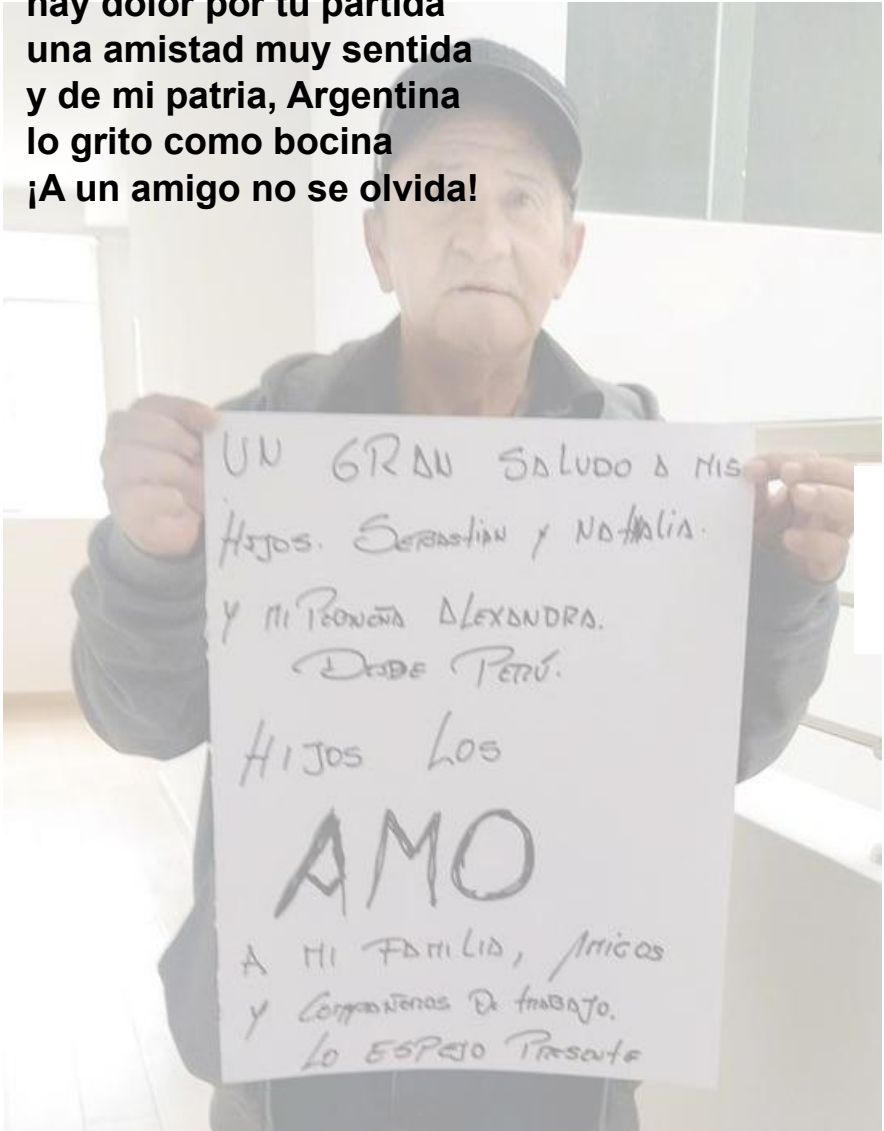 hay dolor por tu partida
una amistad muy sentida
y de mi patria, Argentina
lo grito como bocina
¡A un amigo no se olvida!
UN GRAN SALUDO A MIS
HIJOS. SEBASTIAN Y NATHALIA.
Y MI PEQUEÑA ALEXANDRA.
DESDE PERÚ.
HIJOS LOS
AMO
A MI FAMILIA, AMIGOS
Y COMPAÑEROS DE TRABAJO.
LO ESPEJO PRESENTE